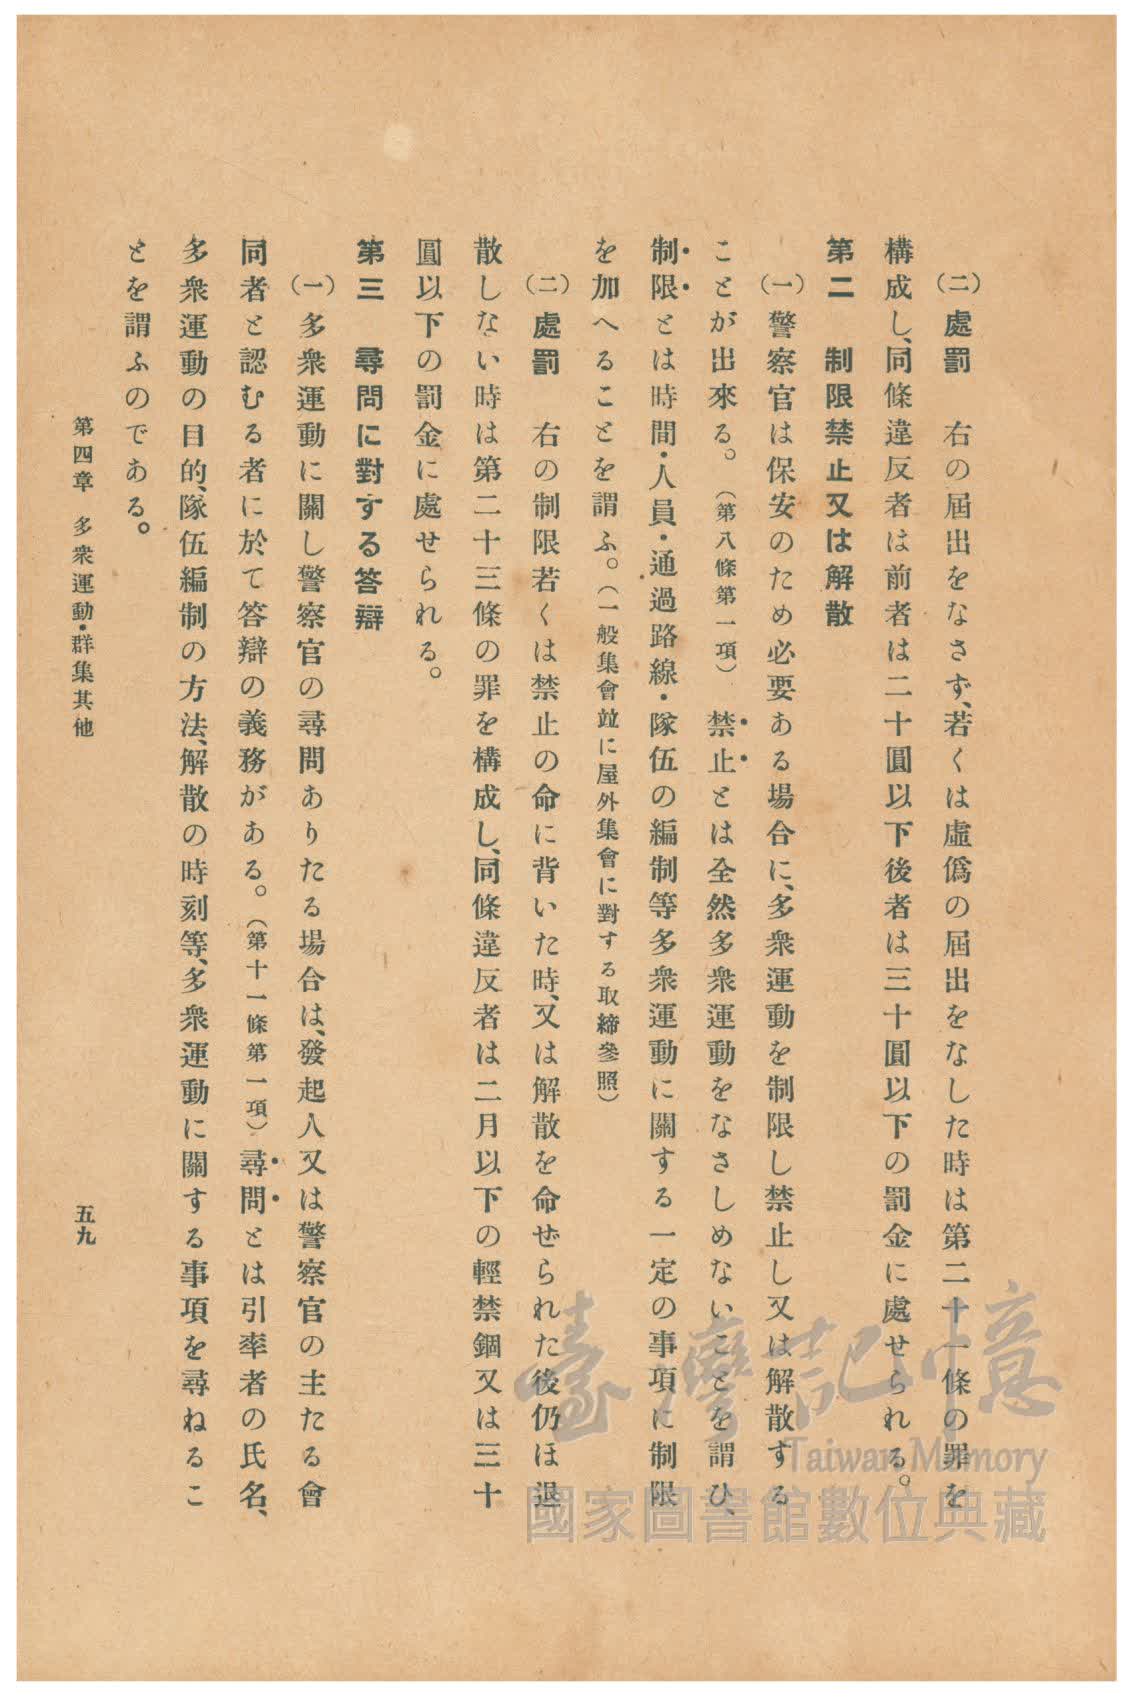 (二)處罰　右の屆出をなさず、若くは虛僞の屆出をなした時は第二十一條の罪を
構成し、同條違反者は前者は二十圓以下後者は三十圓以下の罰金に處せられる。
第二　制限禁止又は解散
(一)警察官は保安のため必要ある場合に、多衆運動を制限し禁止し又は解散する
ことが出來る。(第八條第一項)　禁止とは全然多衆運動をなさしめないことを謂ひ、
制限とは時間・人員・通過路線・隊伍の編制等多衆運動に關する一定の事項に制限
を加へることを謂ふ。(一般集會竝に屋外集會に對する取締參照)
(二)處罰　右の制限若くは禁止の命に背いた時、又は解散を命ぜられた後仍ほ退
散しない時は第二十三條の罪を構成し、同條違反者は二月以下の輕禁錮又は三十
圓以下の罰金に處せられる。
第三　尋問に對する答辯
(一)多衆運動に關し警察官の尋問ありたる場合は、發起人又は警察官の主たる會
同者と認むる者に於て答辯の義務がある。(第十一條第一項)尋問とは引率者の氏名、
多衆運動の目的、隊伍編制の方法、解散の時刻等、多衆運動に關する事項を尋ねるこ
とを謂ふのである。
第四章　多衆運動・群集其他
五九
臺灣記憶
Taiwan Memory
國家圖書館數位典藏